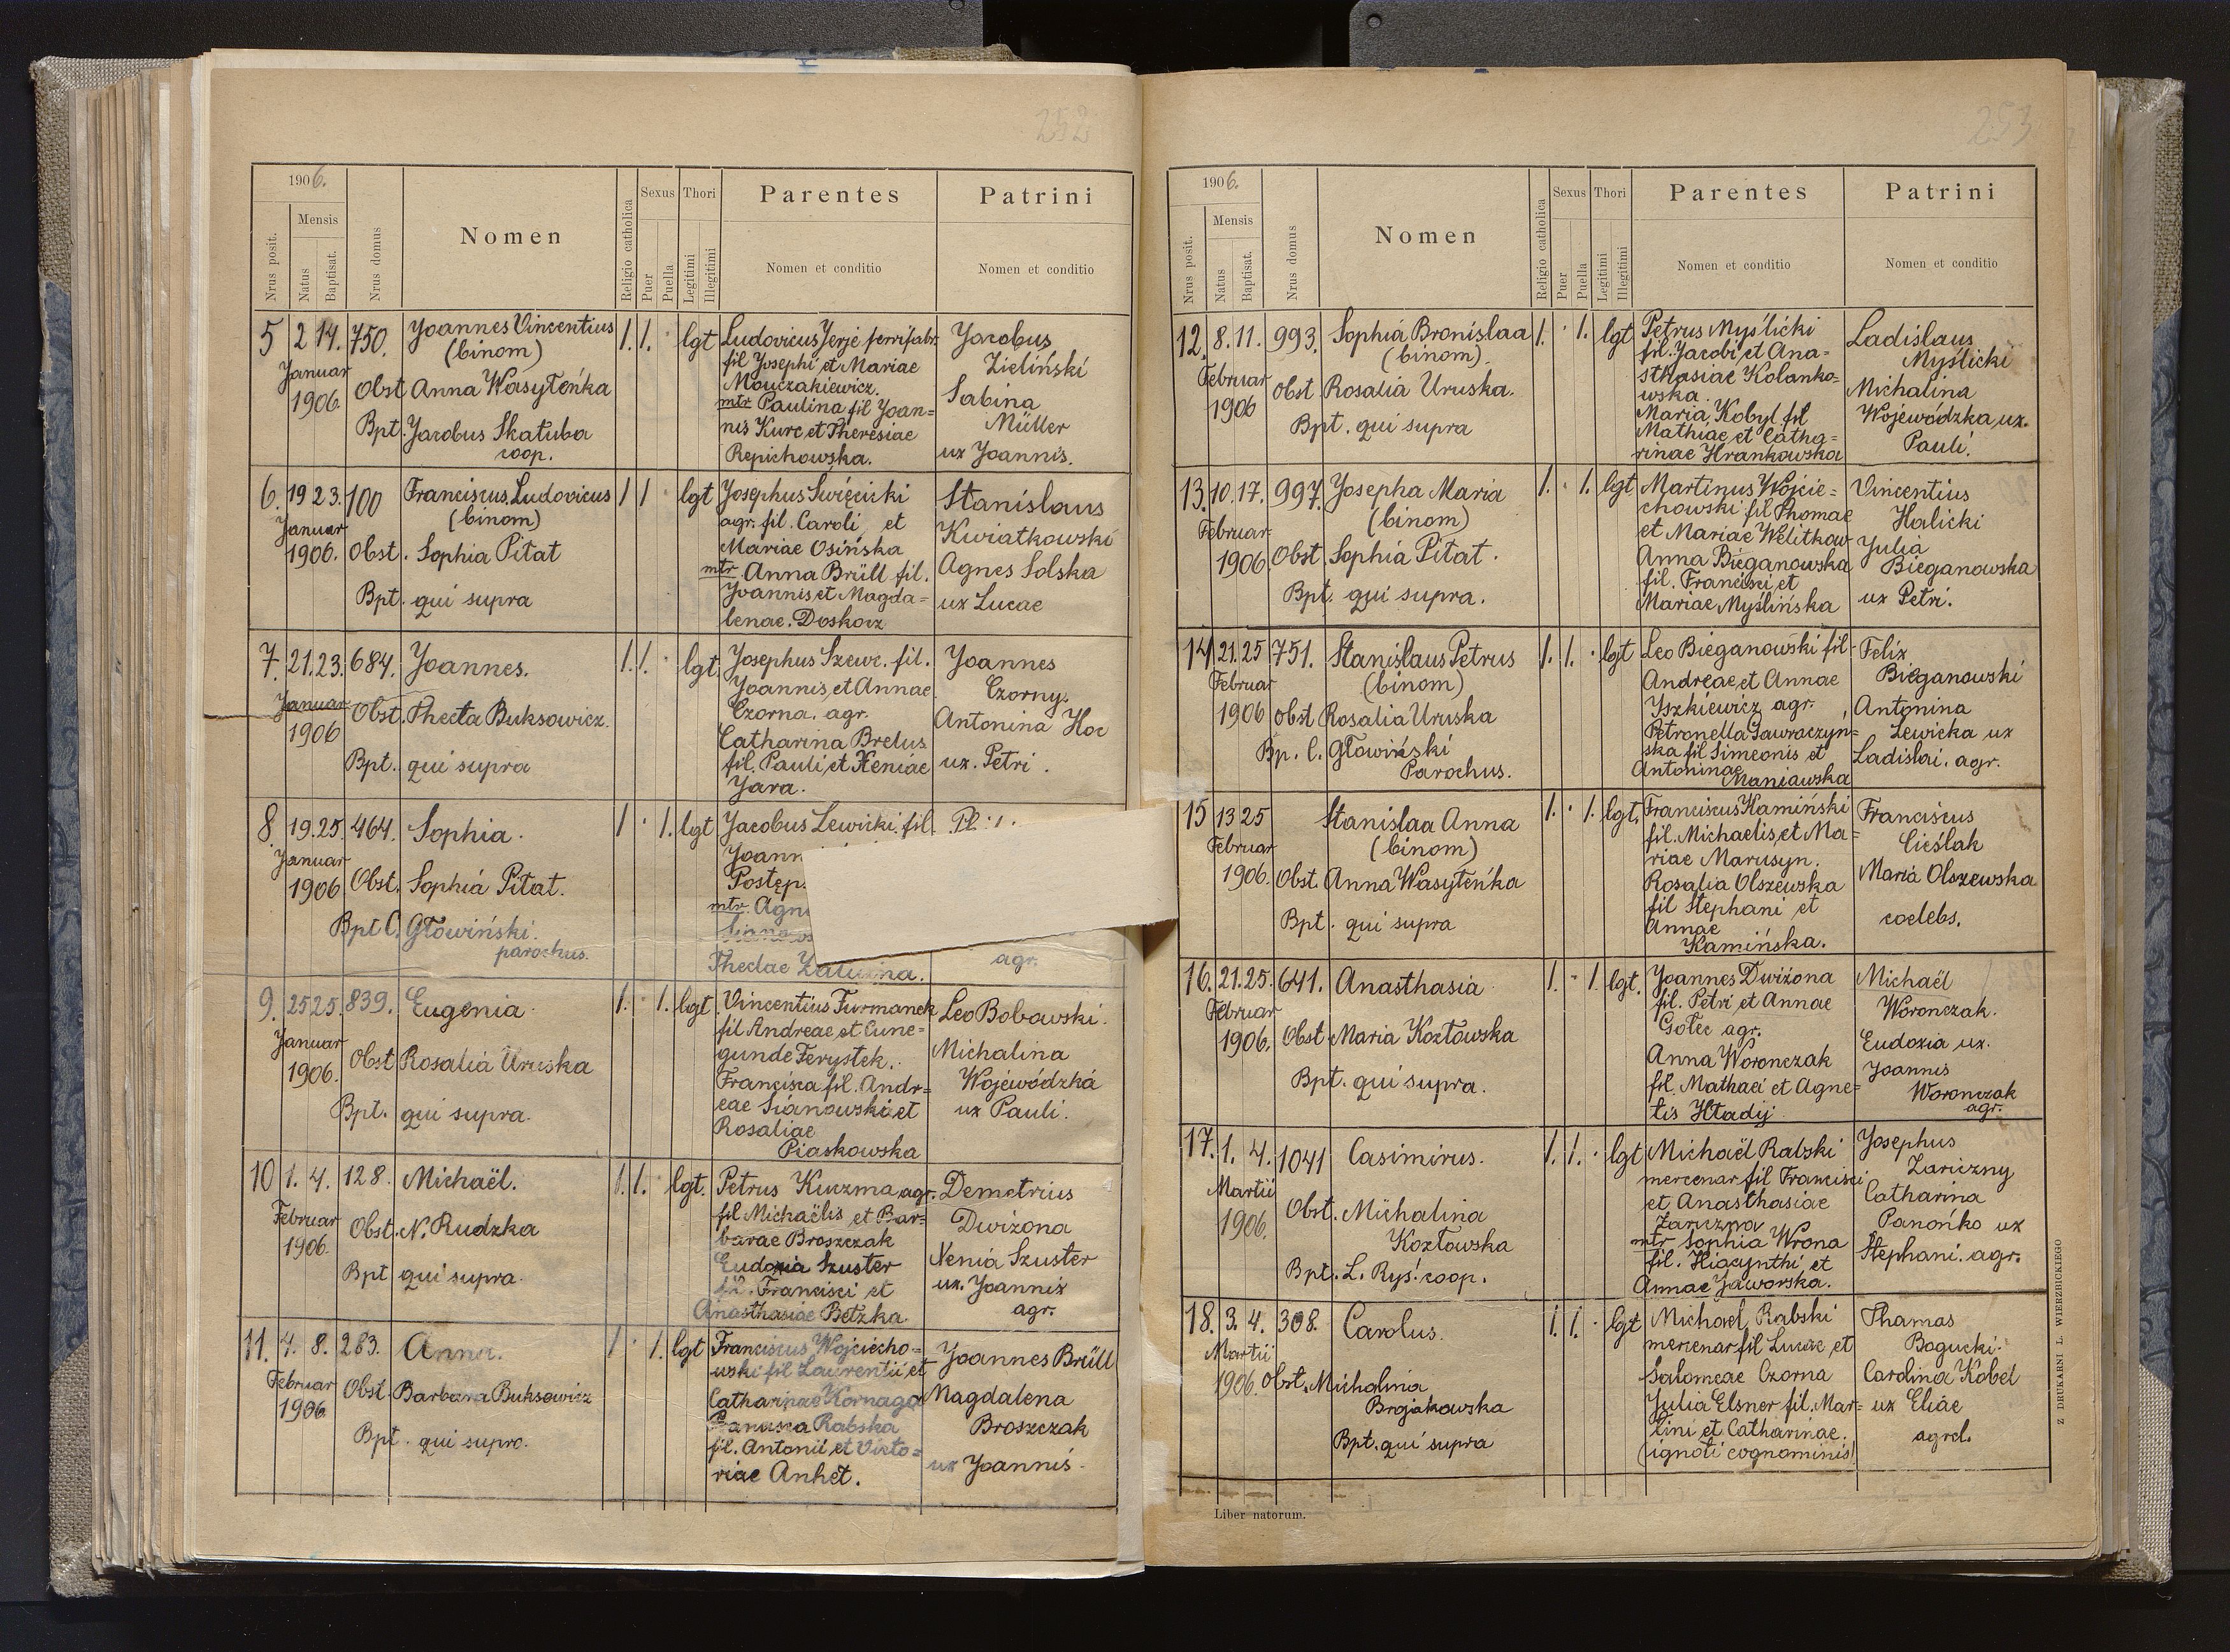 252
1906.
Nrus posit.
Mensis
Natus
Baptisat.
Nrus domus
Nomen
Religio catholica
Sexus
Puer
Puella
Thori
Legitimi
Illegitimi
Parentes
Nomen et conditio
Patrini
Nomen et conditio
5 2 14. 750. Joannes Vincentius 1. 1. lgt
(binom)
Januar
1906.
Obst Anna Wasyleńka
Bpt. Jacobus Skałuba
coop.
Ludovicus Jerje ferrifabr.
fil Josephi et Mariae
Mouczakiewicz.
mtr Paulina fil Joan=
nis Kurc et Theresiae
Repichowska.
Jacobus
Zieliński
Sabina
Müller
ux Joannis.
6. 19 23. 100 Franciscus Ludovicus 1 1 lgt
(binom)
Januar
1906.
Obst. Sophia Pitat
Bpt. qui supra
Josephus Święcicki
agr. fil. Caroli et
Mariae Osińska
mtr. Anna Brüll fil.
Joannis et Magda=
lenae. Doskocz
Stanislaus
Kwiatkowski
Agnes Solska
ux Lucae
7. 21.23. 684. Joannes. 1. 1. lgt.
Januar
1906
Obst. Thecla Buksowicz.
Bpt. qui supra
Josephus Szewc. fil.
Joannis, et Annae
Czorna. agr.
Catharina Brelus
fil. Pauli, et Xeniae
Jara.
Joannes
Czorny.
Antonina Hoc
ux. Petri.
8. 19.25. 464. Sophia. 1 1. lgt
Januar
1906
Obst. Sophia Pitat.
Bpt C. Głowiński.
parochus.
Jacobus Lewicki. fil.
Joann
Postęp.
mtr. Agn
Thedae
agr.
9. 25 25. 839. Eugenia. 1. 1. lgt.
Januar
1906.
Obst Rosalia Uruska
Bpt. qui supra.
Vincentius Furmanek
fil Andreae, et Cune=
gunde Ferystek.
Francisca fil. Andr=
eae Sianowski et
Rosaliae
Piaskowska
Leo Bobowski.
Michalina
Wojewódzka
ux Pauli.
10 1. 4. 128. Michaël. 1. 1. lgt.
Februar
1906.
Obst. N. Rudzka
Bpt qui supra.
Petrus Kuczma agr.
fil Michaëlis et Bar=
barae Broszczak
Eudoxia Szuster
fil. Francisci et
Anasthasiae Betzka.
Demetrius
Dwiżona
Xenia Szuster
ux. Joannis
agr.
11. 4. 8. 283. Anna. 1 1. lgt
Februar
1906
Obst. Barbara Buksowicz
Bpt. qui supra.
Franciscus Wojciecho=
wski fil Laurentii et
Catharinae Kornaga
Rabska
fil. Antonii et Victo=
riae Anhet.
Joannes Brüll
Magdalena
Broszczak
ux Joannis.
253
1906.
Nrus posit.
Mensis
Natus
Baptisat.
Nrus domus
Nomen
Religio catholica
Sexus
Puer
Puella
Thori
Legitimi
Illegitimi
Parentes
Nomen et conditio
Patrini
Nomen et conditio
12. 8. 11. 993. Sophia Bronislaa 1. 1. lgt
(binom).
Februar
1906
Obst Rosalia Uruska.
Bpt. qui supra
Petrus Myślicki
fil. Jacobi et Ana=
sthasiae Kolanko=
wska.
Maria Kobyl fil
Mathiae et Catha=
rinae Hrankowska
Ladislaus
Myślicki
Michalina
Wojewódzka, ux.
Pauli.
13. 10. 17. 997. Josepha Maria 1. 1. lgt
(binom)
Februar
1906.
Obst. Sophia Pitat.
Bpt. qui supra.
Martinus Wojcie=
chowski fil Thomae
et Mariae Welitkow
Anna Bieganowska
fil. Francisci et
Mariae Myślińska
Vincentius
Halicki
Julia
Bieganowska
ux Petri.
14 21. 25 751. Stanislaus Petrus 1. 1. lgt
(binom)
Februar
1906
Obst Rosalia Uruska
Bp. C. Głowiński
Parochus.
Leo Bieganowski fil
Andreae, et Annae
Jszkiewicz agr.
Petronella Gawraczyn=
ska fil Simeonis et
Antoninae
Maniawska
Felix
Bieganowski
Antonina
Lewicka ux
Ladislai. agr.
15 13 25 Stanislaa Anna 1. 1. lgt.
(binom)
Februar
1906.
Obst. Anna Wasyleńka
Bpt. qui supra
Franciscus Kamiński
fil. Michaelis, et Ma=
riae Marusyn.
Rosalia Olszewska
fil Stephani et
Annae
Kamińska.
Franciscus
Cieślak
Maria Olszewska
coelebs.
16. 21. 25. 641. Anasthasia 1. 1. lgt.
Februar
1906.
Obst Maria Kozłowska
Bpt. qui supra.
Joannes Dwiżona
fil. Petri et Annae
Gołec agr.
Anna Woronczak
fil. Mathaei et Agne=
tis Hładij
Michaël
Woronczak.
Eudoxia ux.
Joannis
Woronczak
agr.
17. 1. 4. 1041 Casimirus. 1. 1. lgt
Martii
1906.
Obst. Michalina
Kozłowska
Bpt. L. Ryś. coop.
Michaël Rabski
mercenar fil Francisci
et Anasthasiae
Zariczna
mtr Sophia Wrona
fil. Hiacynthi et
Annae Jaworska.
Josephus
Zariczny
Catharina
Panońko ux
Stephani. agr.
18. 3. 4. 308. Carolus. 1. 1. lgt
Martii
1906.
Obst. Michalina
Brojakowska
Bpt. qui supra
Michael Rabski
mercenar fil Lucae et
Salomeae Czorna
Julia Elsner fil. Mar=
tini et Catharinae.
(ignoti cognominis)
Thomas
Bogucki.
Carolina Kobel
ux Eliae
agrcl.
Liber natorum.
Z DRUKARNI L. WIERZBICKIEGO